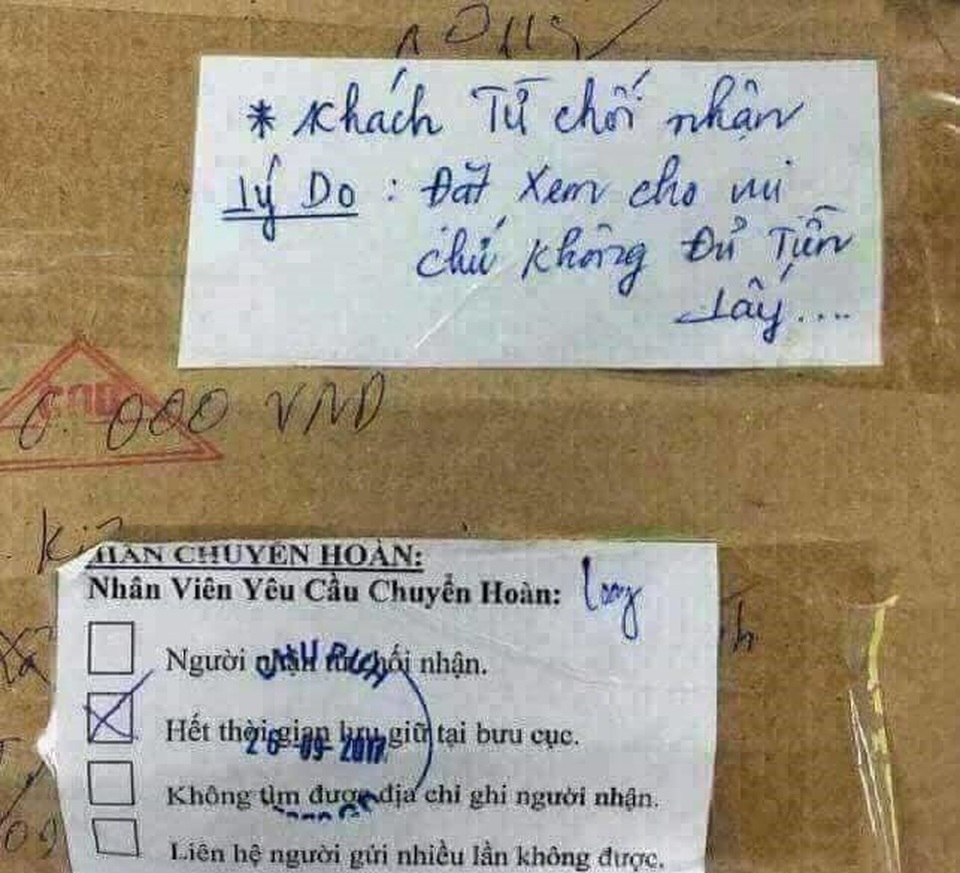 * Khách Từ chối nhận
Lý Do : Đặt xem cho vui
chứ không Đủ Tiền
Lấy....
COD
0.000 VNĐ
CHUYỂN HOÀN:
Nhân Viên Yêu Cầu Chuyển Hoàn:
Người nhận từ chối nhận.
Hết thời gian lưu giữ tại bưu cục.
26-09-2017
Không tìm được địa chỉ ghi người nhận.
Liên hệ người gửi nhiều lần không được.